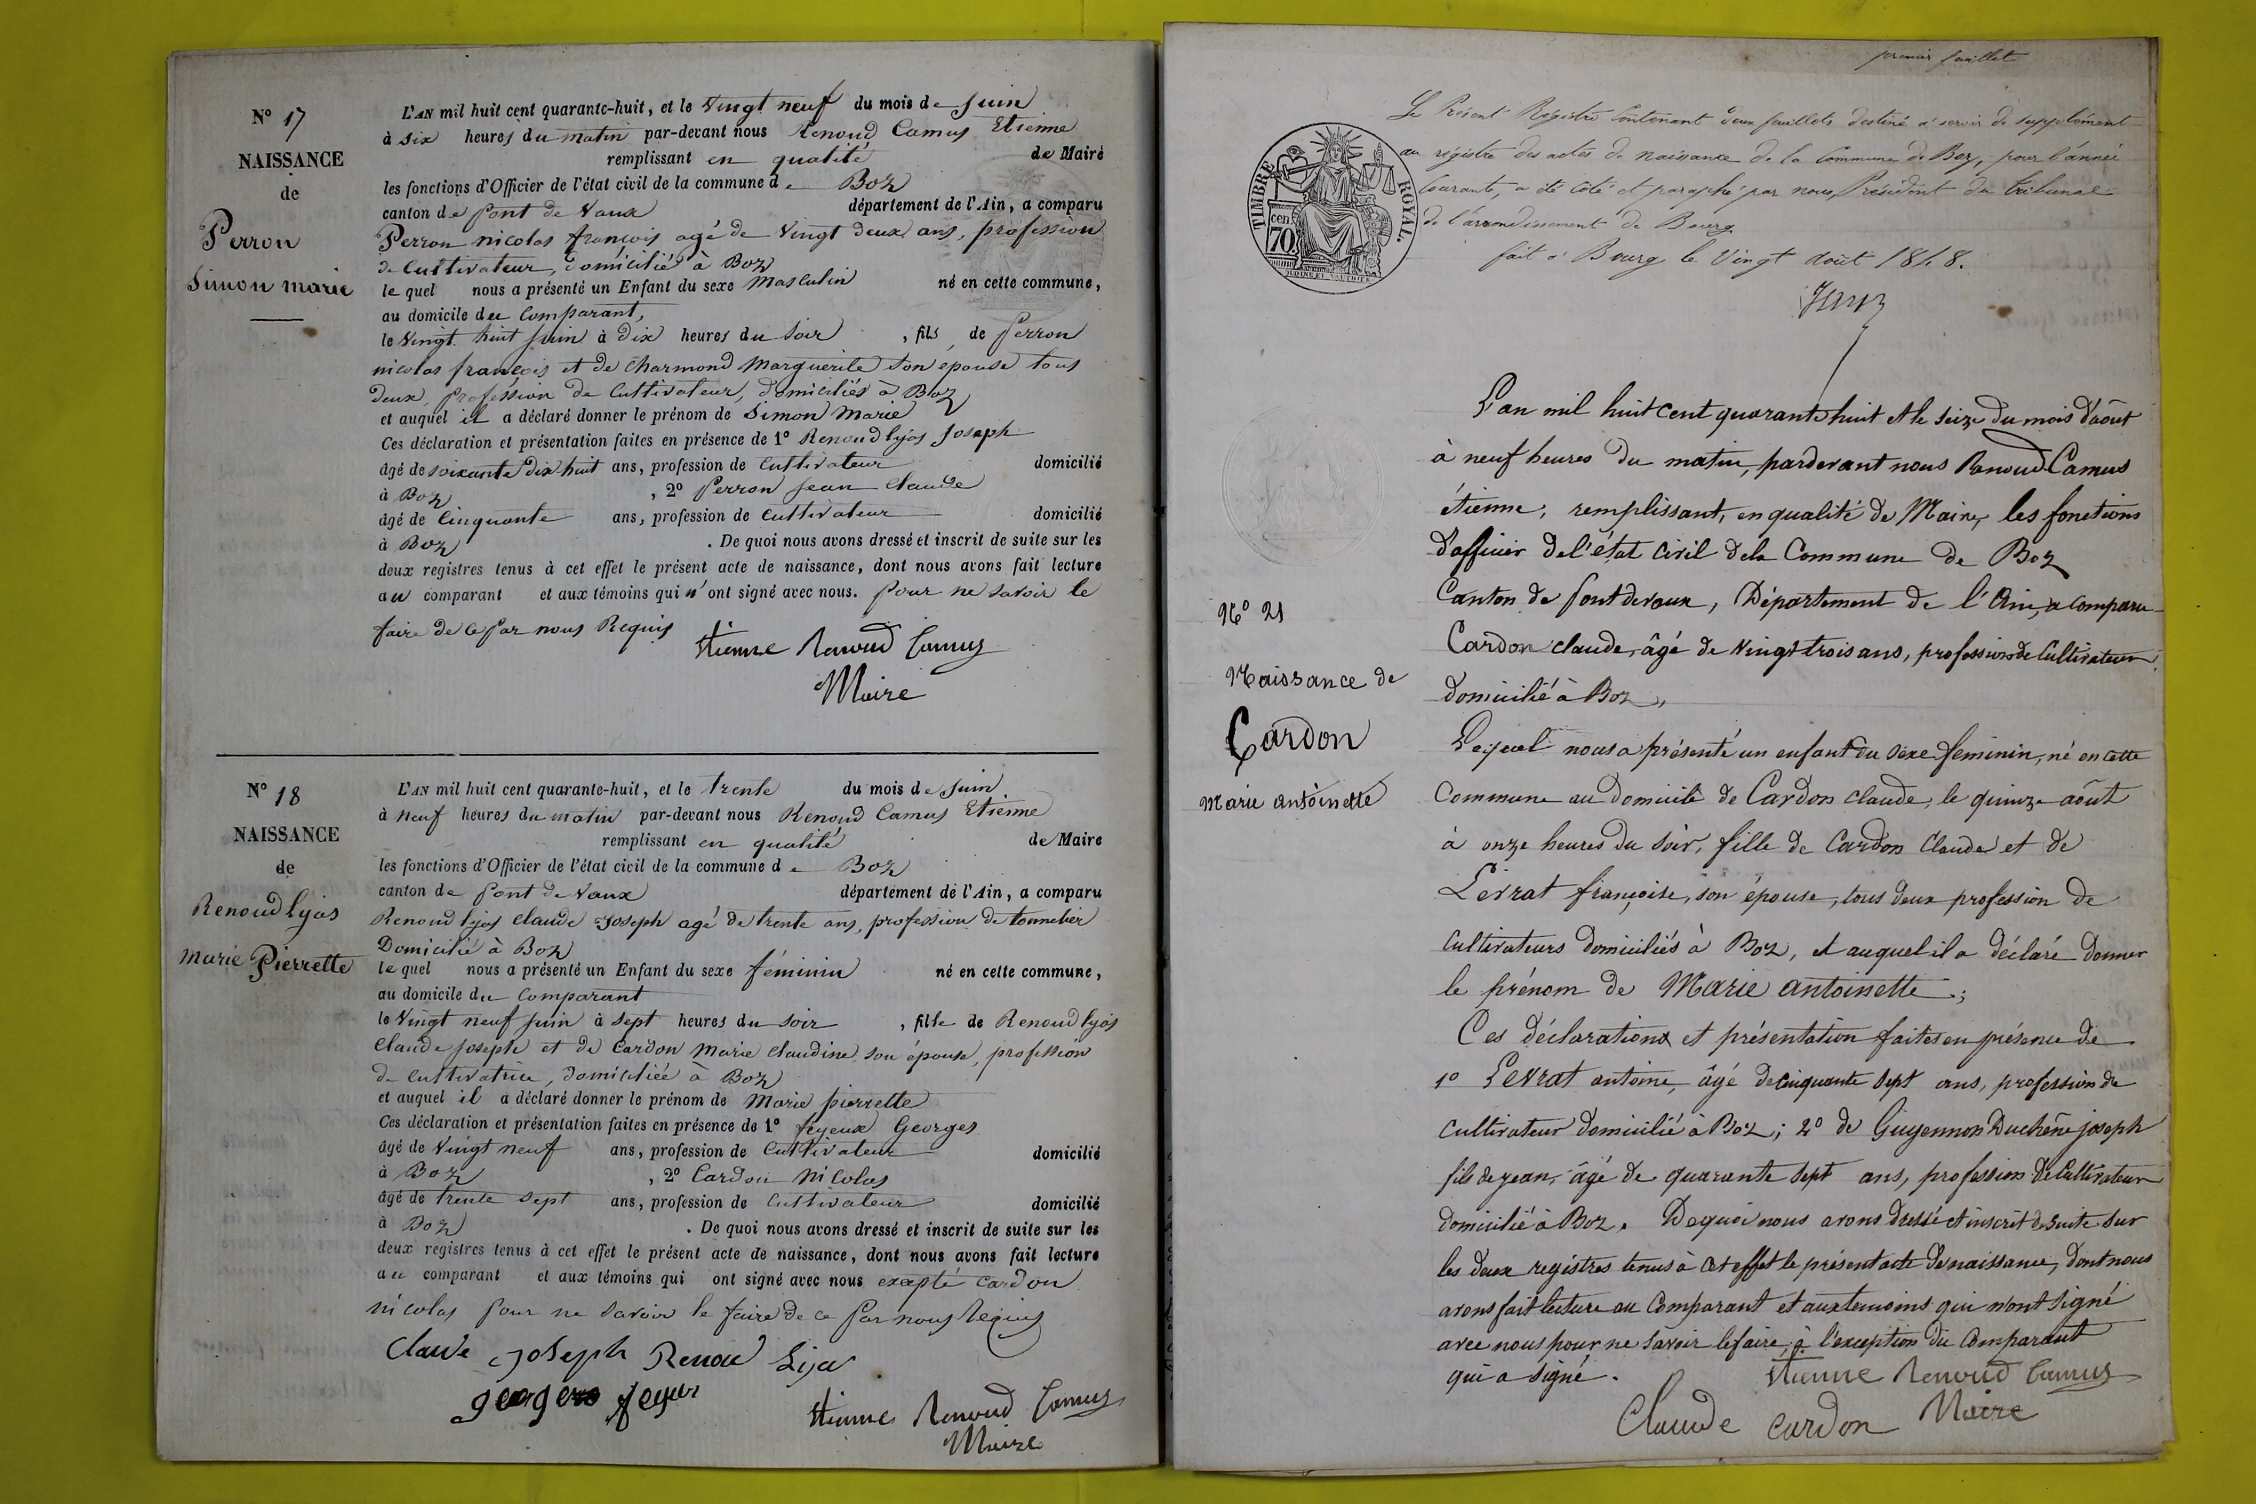 N° 17
NAISSANCE
de
Perron
Simon marie
L'AN mil huit cent quarante-huit, et le Vingt neuf du mois de Juin
à six heures du matin par-devant nous Renoud Camus Etienne
remplissant en qualité de Maire
les fonctions d'Officier de l'état civil de la commune de Boz
canton de pont de Vaux département de l'Ain, a comparu
Perron nicolas françois agé de Vingt deux ans, profession
de Cultivateur, domicilié à Boz
le quel nous a présenté un Enfant du sexe Masculin né en cette commune,
au domicile du Comparant,
le Vingt huit juin à dix heures du soir, fils de Perron
nicolas françois et de Charmond Marguerite son épouse tous
deux, profession de Cultivateur, domiciliés à Boz
et auquel il a déclaré donner le prénom de Simon Marie
Ces déclaration et présentation faites en présence de 1° Renoud lyos Joseph
âgé de soixante dix huit ans, profession de Cultivateur domicilié
à Boz, 2° Perron Jean Claude
âgé de Cinquante ans, profession de Cultivateur domicilié
à Boz. De quoi nous avons dressé et inscrit de suite sur les
deux registres tenus à cet effet le présent acte de naissance, dont nous avons fait lecture
au comparant et aux témoins qui n'ont signé avec nous. pour ne savoir le
faire de ce par nous Requis
Etienne Renoud Camus
Maire
N° 18
NAISSANCE
de
Renoud lyos
Marie Pierrette
L'AN mil huit cent quarante-huit, et le trente du mois de Juin
à neuf heures du matin par-devant nous Renoud Camus Etienne
remplissant en qualité de Maire
les fonctions d'Officier de l'état civil de la commune de Boz
canton de pont de Vaux département de l'Ain, a comparu
Renoud lyos Claude Joseph agé de trente ans, profession de tonnelier
Domicilié à Boz
le quel nous a présenté un Enfant du sexe féminin né en cette commune,
au domicile du Comparant
le Vingt neuf juin à sept heures du soir, fille de Renoud lyos
Claude Joseph et de Cardon Marie Claudine son épouse, profession
de Cultivatrice, domiciliée à Boz
et auquel il a déclaré donner le prénom de Marie pierrette
Ces déclaration et présentation faites en présence de 1° feyeux Georges
âgé de Vingt neuf ans, profession de Cultivateur domicilié
à Boz, 2° Cardon Nicolas
âgé de trente sept ans, profession de Cultivateur domicilié
à Boz. De quoi nous avons dressé et inscrit de suite sur les
deux registres tenus à cet effet le présent acte de naissance, dont nous avons fait lecture
au comparant et aux témoins qui ont signé avec nous excepté Cardon
nicolas pour ne savoir le faire de ce par nous requis
Claude joseph Renou Lija
georges feyeux
Etienne Renoud Camus
Maire
premier feuillet
Le Présent Régistre Contenant deux feuillets destiné à servir de supplément
au régistre des actes de naissance de la Commune de Boz, pour l'année
Courante, a été côté et paraphé par nous, Président du tribunal
de l'arrondissement de Bourg
fait à Bourg le Vingt août 1848.
TIMBRE ROYAL.
70 cen
L'an mil huit cent quarante huit et le seize du mois d'août
à neuf heures du matin, pardevant nous Renoud Camus
étienne, remplissant, en qualité de Maire, les fonctions
d'officier de l'état civil de la Commune de Boz
Canton de pont devaux, Département de l'Ain, a comparu
Cardon claude, âgé de Vingt trois ans, profession de Cultivateur,
domicilié à Boz,
N° 21
Naissance de
Cardon
Marie antoinette
Lequel nous a présenté un enfant du sexe feminin, né en cette
Commune au domicile de Cardon claude, le quinze août
à onze heures du soir, fille de Cardon Claude et de
Levrat françoise, son épouse, tous deux profession de
Cultivateurs domiciliés à Boz, et auquel il a déclaré donner
le prénom de Marie antoinette;
Ces déclarations et présentation faites en présence de
1° Levrat antoine, âgé de cinquante sept ans, profession de
Cultivateur domicilié à Boz; 2° de Guyennon Duchêne joseph
fils de jean, âgé de quarante sept ans, profession de Cultivateur
domicilié à Boz. De quoi nous avons dressé et inscrit de suite sur
les deux régistres tenus à cet effet le présent acte de naissance, dont nous
avons fait lecture au Comparant et aux temoins qui n'ont signé
avec nous pour ne savoir le faire, à l'exception du Comparant
qui a signé.
Etienne Renoud Camus
Maire
Claude cardon